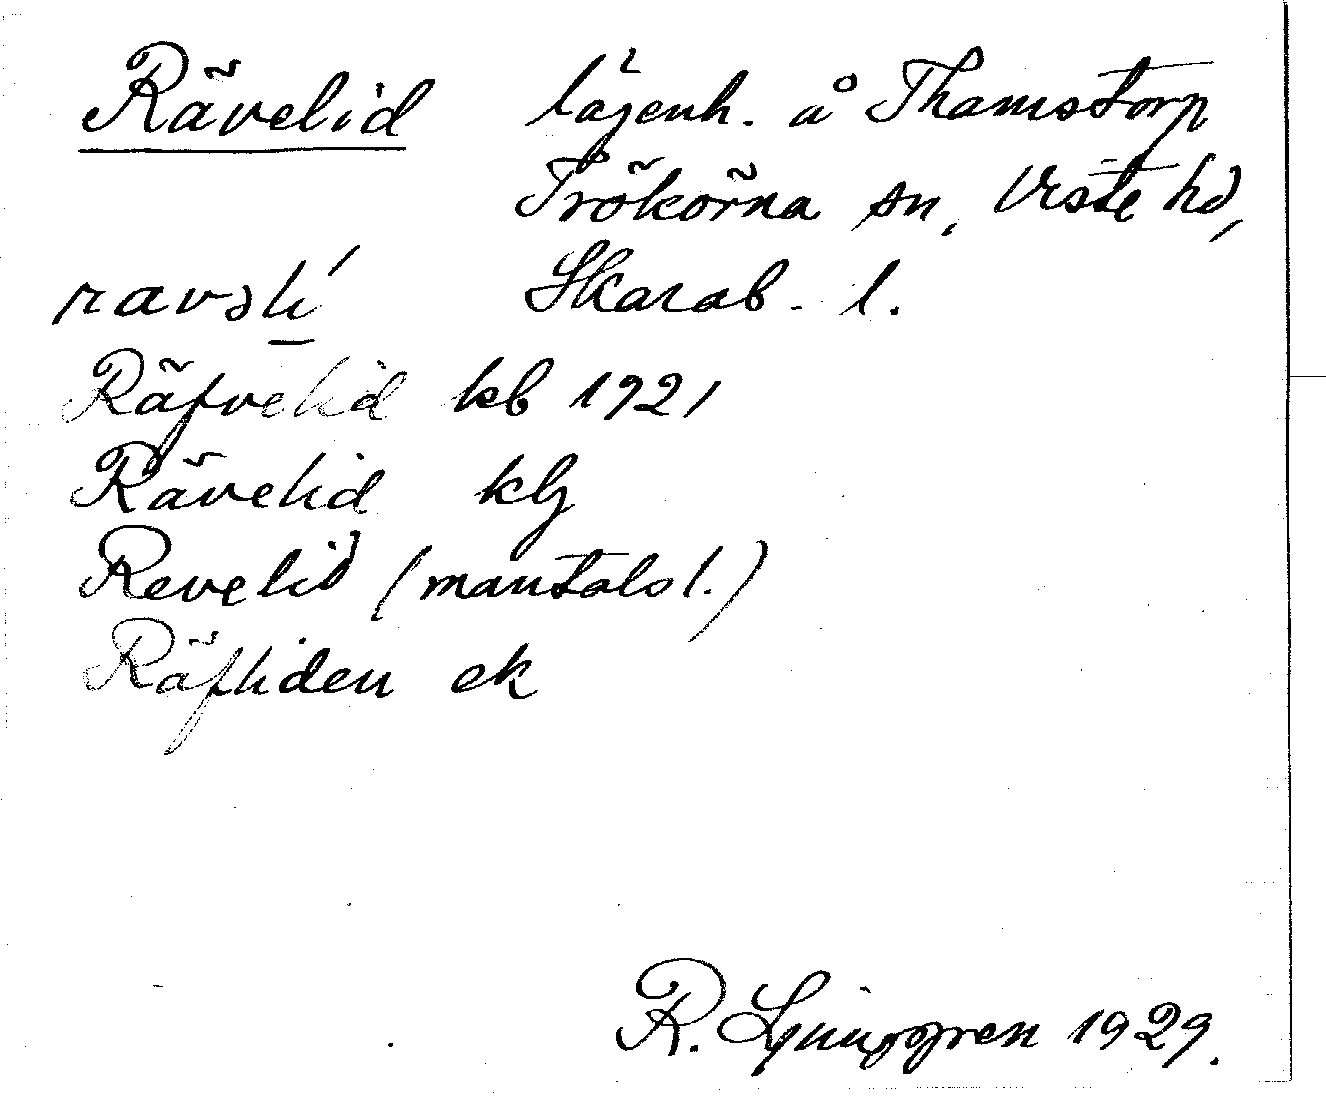 Rävelid lägenh. å Thamstorp
Trökörna sn, Viste hd,
Skarab. l.
Räfvelid kb 1921
Rävelid klj
Revelid (mantalsl.)
Räfliden ek
R. Ljunggren 1929.